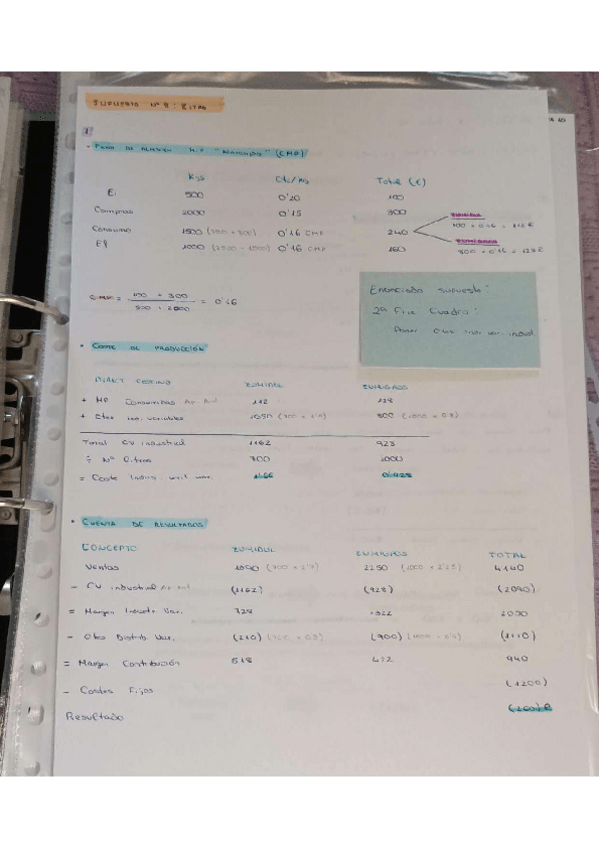 SUPUESTO Nº 8:
1
• FICHA DE ALMACÉN M.P "NARANJAS" (CMP)
Kgs Cte/kg Total (€)
Ei 500 0'20 100
Compras 2000 0'15 300
Consumo 1500 (700 + 800) 0'16 CMP 240
ZUMIDUL
700 × 0'16 = 112€
800 × 0'16 = 128€
Ef 1000 (2500 - 1500) 0'16 CMP 160
CMP = 100 + 300 / 500 + 2000 = 0'16
Enunciado supuesto:
2ª Fila Cuadro:
Ctes indr var. indust
• COSTE DE PRODUCCIÓN
DIRECT COSTING ZUMIDUL
+ MP Consumidas 112 128
+ Ctes ind. variables 1050 (700 × 1'5) 800 (1000 × 0'8)
Total CV industrial 1162 928
÷ Nº litros 700 1000
= Coste Indus. unit var. 1'66 0'928
• CUENTA DE RESULTADOS
CONCEPTO ZUMIDUL TOTAL
Ventas 1890 (700 × 2'7) 2250 (1000 × 2'25) 4140
- CV industrial (1162) (928) (2090)
= Margen Industr Var. 728 1322 2050
- Ctes Distrib. Var. (210) (700 × 0'3) (900) (1110)
= Margen Contribución 518 422 940
- Costes Fijos (1200)
Resultado (260)€